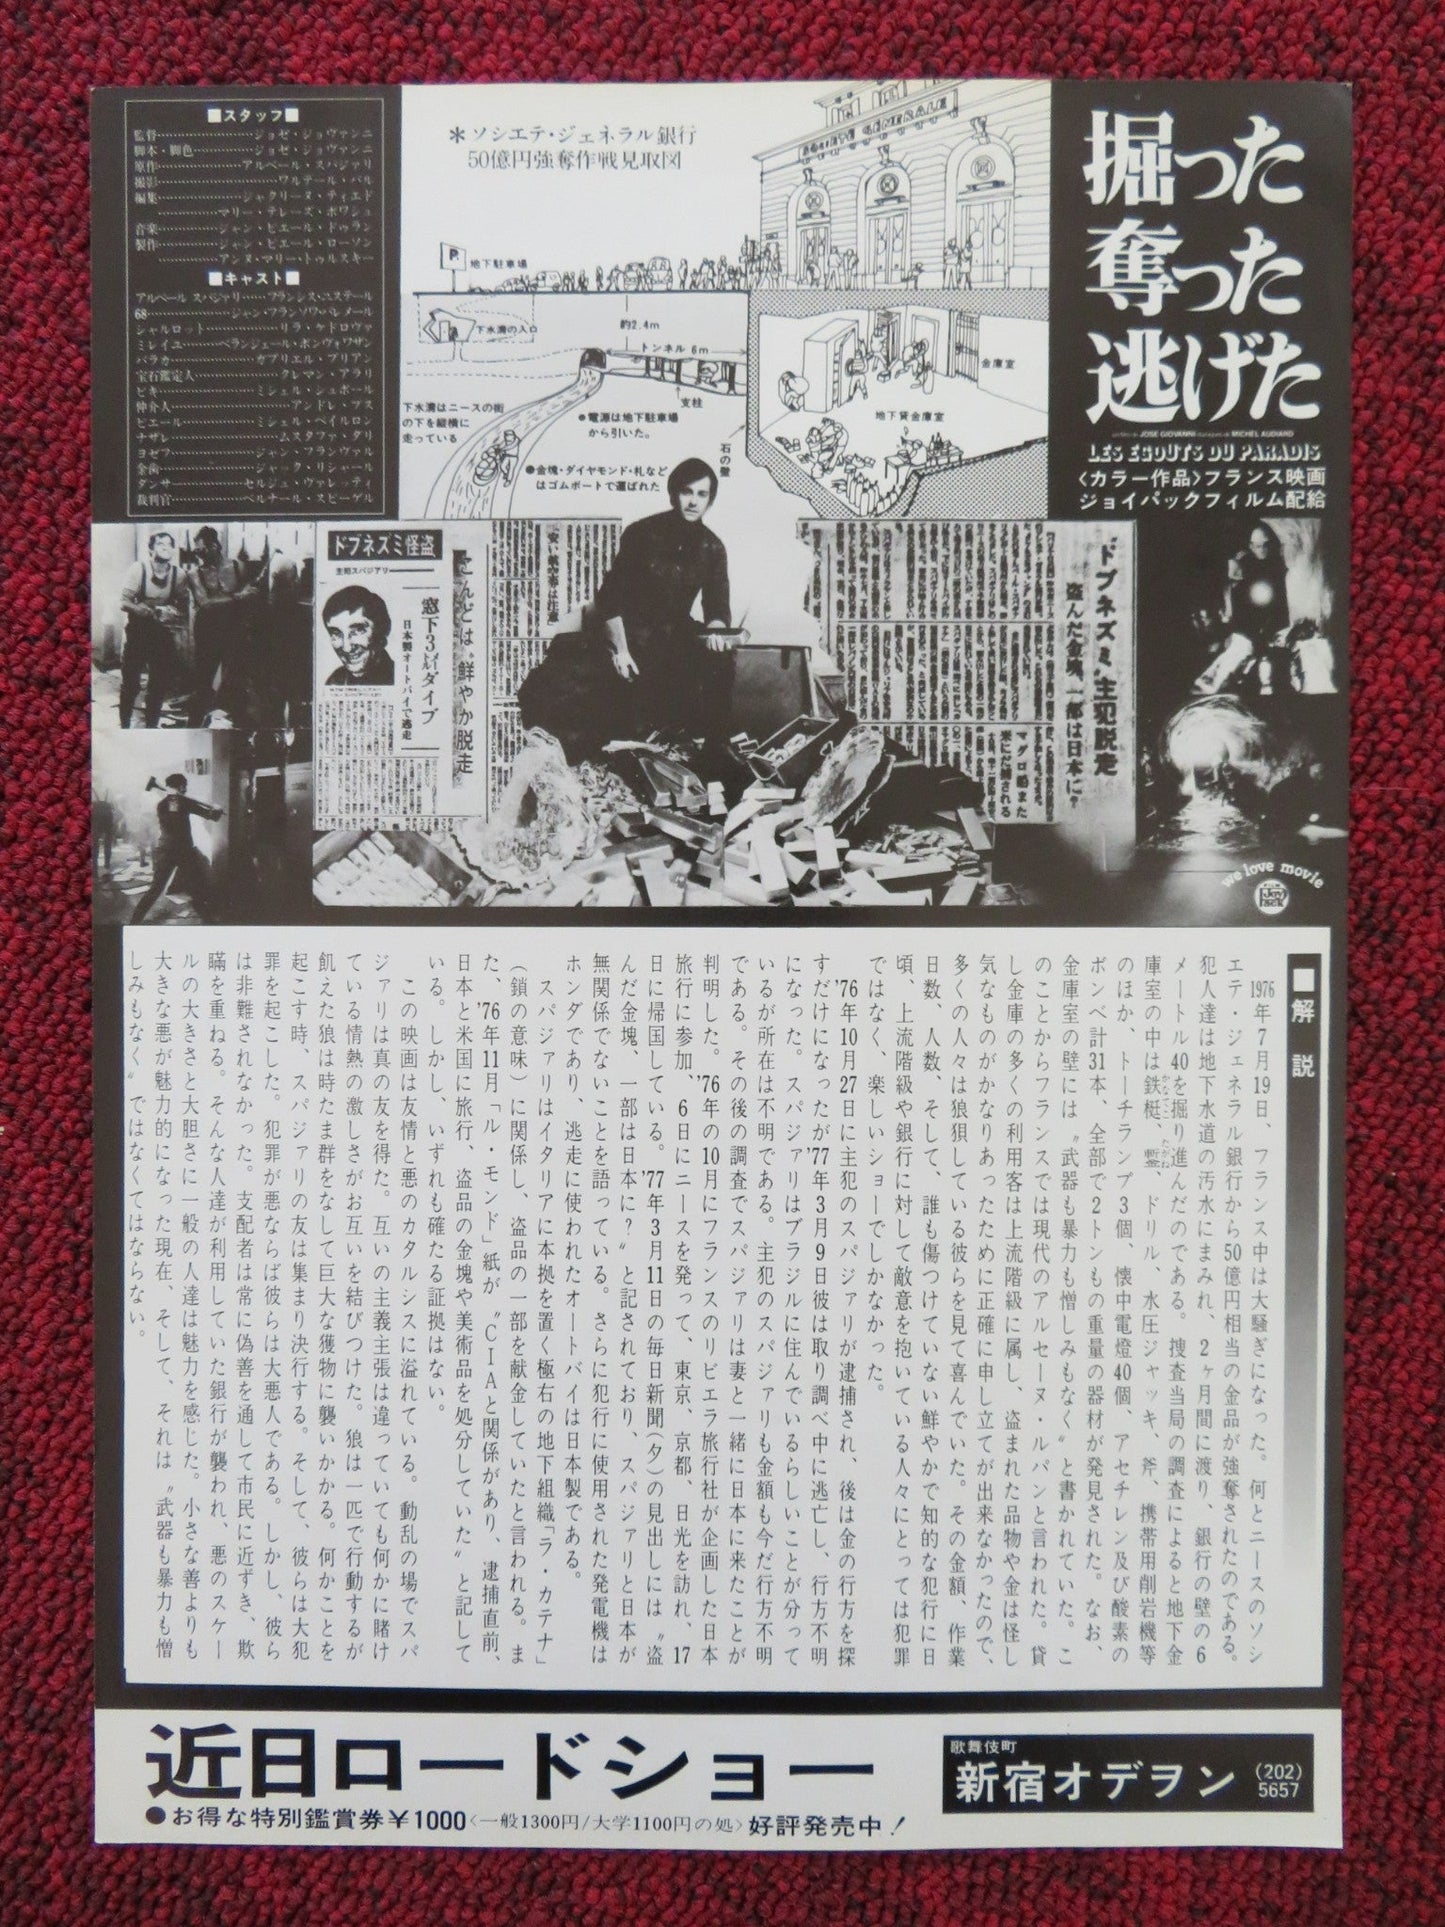 掘った
奪った
逃げた
LES EGOUTS DU PARADIS
〈カラー作品〉フランス映画
ジョイパックフィルム配給
＊ソシエテ・ジェネラル銀行
50億円強奪作戦見取図
SOCIETE GENERALE
P.
地下駐車場
下水溝の入口
約2.4m
トンネル 6m
支柱
金庫室
地下貸金庫室
石の壁
下水溝はニースの街
の下を縦横に
走っている
●電源は地下駐車場
から引いた。
●金塊・ダイヤモンド・札など
はゴムボートで運ばれた
■スタッフ■
監督……ジョゼ・ジョヴァンニ
脚本・脚色……ジョゼ・ジョヴァンニ
原作……アルベール・スパジァリ
撮影……ワルテール・バル
編集……ジャクリーヌ・ティエド
……マリー・テレーズ・ボワシュ
音楽……ジャン・ピエール・ドゥラン
製作……ジャン・ピエール・ローソン
……アンヌ・マリー・トゥルスキー
■キャスト■
アルベール スパジャリ……フランシス・ユステール
68……ジャン・フランソワ・バルメール
シャルロット……リラ・ケドロヴァ
ミレイユ……ベランジェール・ボンヴォワザン
バラカ……ガブリエル・ブリアン
宝石鑑定人……クレマン・アラリ
ビキ……ミシェル・シュボール
仲介人……アンドレ・プス
ピエール……ミシェル・ペイルロン
ナザレ……ムスタファ・ダリ
ヨゼフ……ジャン・フランヴァル
金歯……ジャック・リシャール
タンサ……セルジュ・ヴァレッティ
裁判官……ベルナール・スピーゲル
ドブネズミ怪盗
主犯スパジアリ
窓下3㍍ダイブ
日本製オートバイで逃走
こんどは、鮮やか脱走
ドブネズミ、主犯脱走
盗んだ金塊、一部は日本に?
we love movie
■解説
1976年7月19日、フランス中は大騒ぎになった。何とニースのソシ
エテ・ジェネラル銀行から50億円相当の金品が強奪されたのである。
犯人達は地下水道の汚水にまみれ、2ヶ月間に渡り、銀行の壁の6
メートル40を掘り進んだのである。捜査当局の調査によると地下金
庫室の中は鉄梃、鏨、ドリル、水圧ジャッキ、斧、携帯用削岩機等
のほか、トーチランプ3個、懐中電燈40個、アセチレン及び酸素の
ボンベ計31本、全部で2トンもの重量の器材が発見された。なお、
金庫室の壁には〝武器も暴力も憎しみもなく〟と書かれていた。こ
のことからフランスでは現代のアルセーヌ・ルパンと言われた。貸
し金庫の多くの利用客は上流階級に属し、盗まれた品物や金は怪し
気なものがかなりあったために正確に申し立てが出来なかったので、
多くの人々は狼狽している彼らを見て喜んでいた。その金額、作業
日数、人数、そして、誰も傷つけていない鮮やかで知的な犯行に日
頃、上流階級や銀行に対して敵意を抱いている人々にとっては犯罪
ではなく、楽しいショーでしかなかった。
'76年10月27日に主犯のスパジァリが逮捕され、後は金の行方を探
すだけになったが'77年3月9日彼は取り調べ中に逃亡し、行方不明
になった。スパジァリはブラジルに住んでいるらしいことが分って
いるが所在は不明である。主犯のスパジァリも金額も今だ行方不明
である。その後の調査でスパジァリは妻と一緒に日本に来たことが
判明した。'76年の10月にフランスのリビエラ旅行社が企画した日本
旅行に参加、6日にニースを発って、東京、京都、日光を訪れ、17
日に帰国している。'77年3月11日の毎日新聞(夕)の見出しには〝盗
んだ金塊、一部は日本に?〟と記されており、スパジァリと日本が
無関係でないことを語っている。さらに犯行に使用された発電機は
ホンダであり、逃走に使われたオートバイは日本製である。
スパジァリはイタリアに本拠を置く極右の地下組織「ラ・カテナ」
(鎖の意味)に関係し、盗品の一部を献金していたと言われる。ま
た、'76年11月「ル・モンド」紙が〝CIAと関係があり、逮捕直前、
日本と米国に旅行、盗品の金塊や美術品を処分していた〟と記して
いる。しかし、いずれも確たる証拠はない。
この映画は友情と悪のカタルシスに溢れている。動乱の場でスパ
ジァリは真の友を得た。互いの主義主張は違っていても何かに賭け
ている情熱の激しさがお互いを結びつけた。狼は一匹で行動するが
飢えた狼は時たま群をなして巨大な獲物に襲いかかる。何かことを
起こす時、スパジァリの友は集まり決行する。そして、彼らは大犯
罪を起こした。犯罪が悪ならば彼らは大悪人である。しかし、彼ら
は非難されなかった。支配者は常に偽善を通して市民に近ずき、欺
瞞を重ねる。そんな人達が利用していた銀行が襲われ、悪のスケー
ルの大きさと大胆さに一般の人達は魅力を感じた。小さな善よりも
大きな悪が魅力的になった現在、そして、それは〝武器も暴力も憎
しみもなく〟ではなくてはならない。
近日ロードショー
●お得な特別鑑賞券￥1000〈一般1300円/大学1100円の処〉好評発売中!
歌舞伎町
新宿オデヲン (202)5657